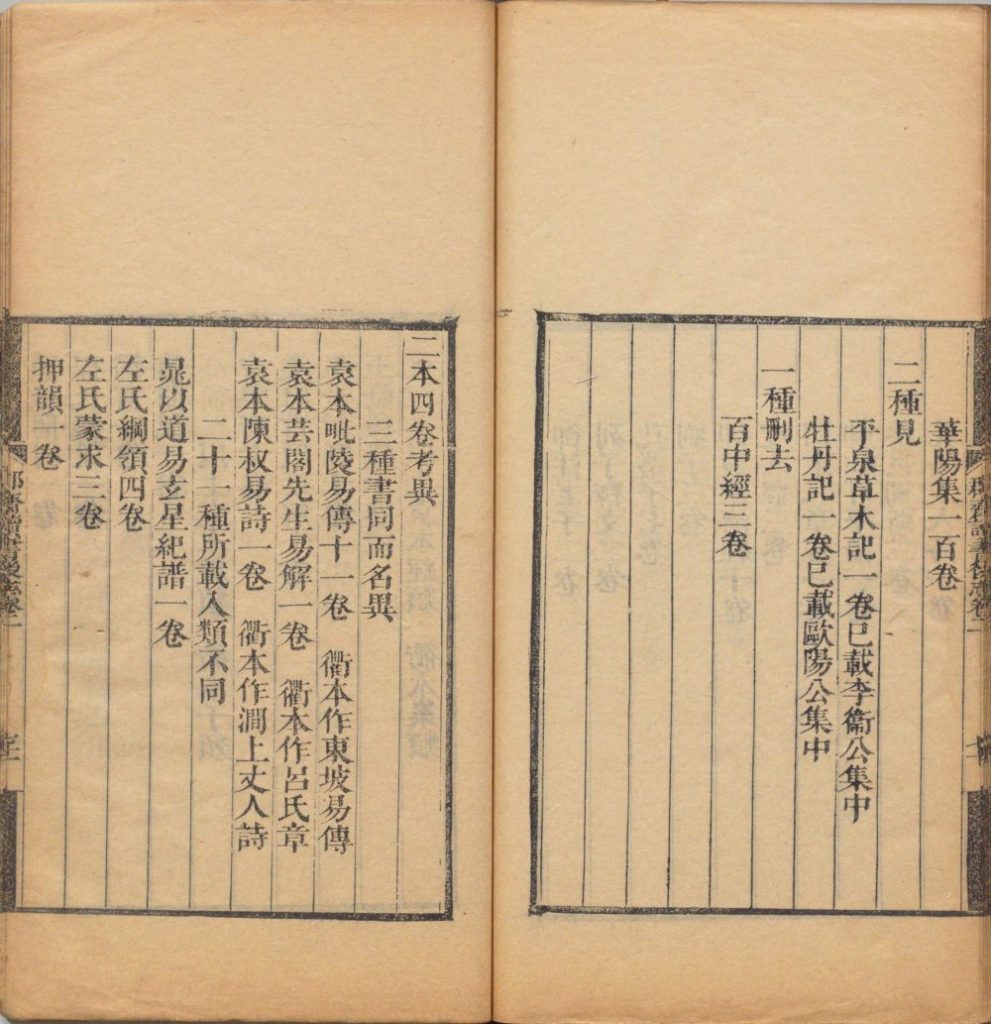 華陽集一百卷
二種見
平泉草木記一卷已載李衞公集中
牡丹記一卷已載歐陽公集中
一種刪去
百中經三卷
二本四卷考異
三種書同而名異
袁本毗陵易傳十一卷　衢本作東坡易傳
袁本芸閣先生易解一卷　衢本作呂氏章
袁本陳叔易詩一卷　衢本作澗上丈人詩
二十一種所載入類不同
晁以道易玄星紀譜一卷
左氏綱領四卷
左氏蒙求三卷
押韻一卷